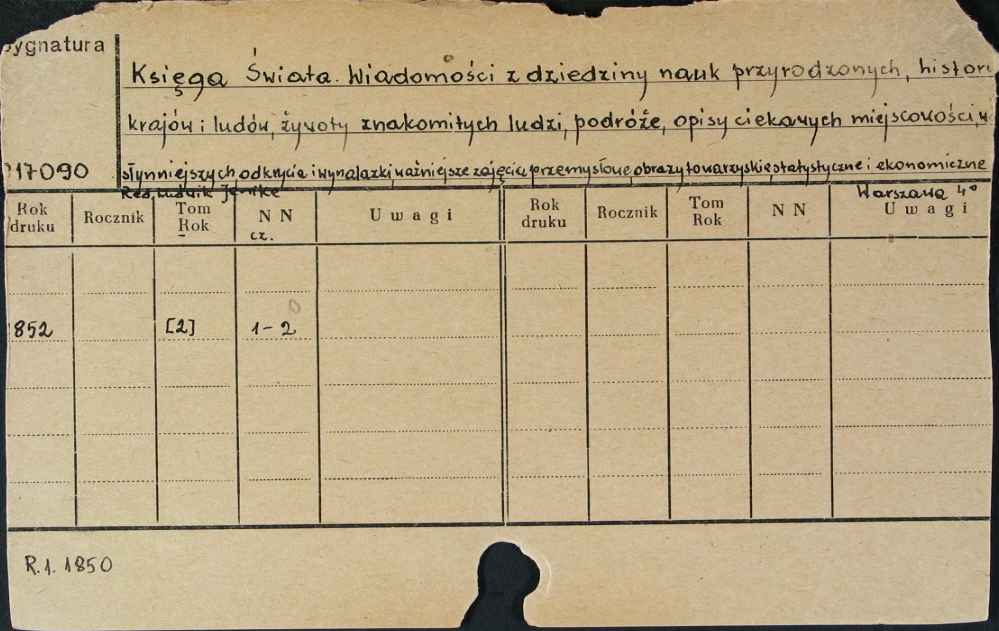 ygnatura
Księga Świata. Wiadomości z dziedziny nauk przyrodzonych, histori
krajów i ludów, żywoty znakomitych ludzi, podróże, opisy ciekawych miejscowości,
17090 słynniejszych odkrycia i wynalazki ważniejsze zajęcia przemysłowe obrazy towarzyskie statystyczne i ekonomiczne
Red. Ludwik Jenike Warszawa 4°
Rok druku Rocznik Tom Rok N N cz. Uwagi Rok druku Rocznik Tom Rok N N Uwagi
852 [2] 1-2
R.1. 1850